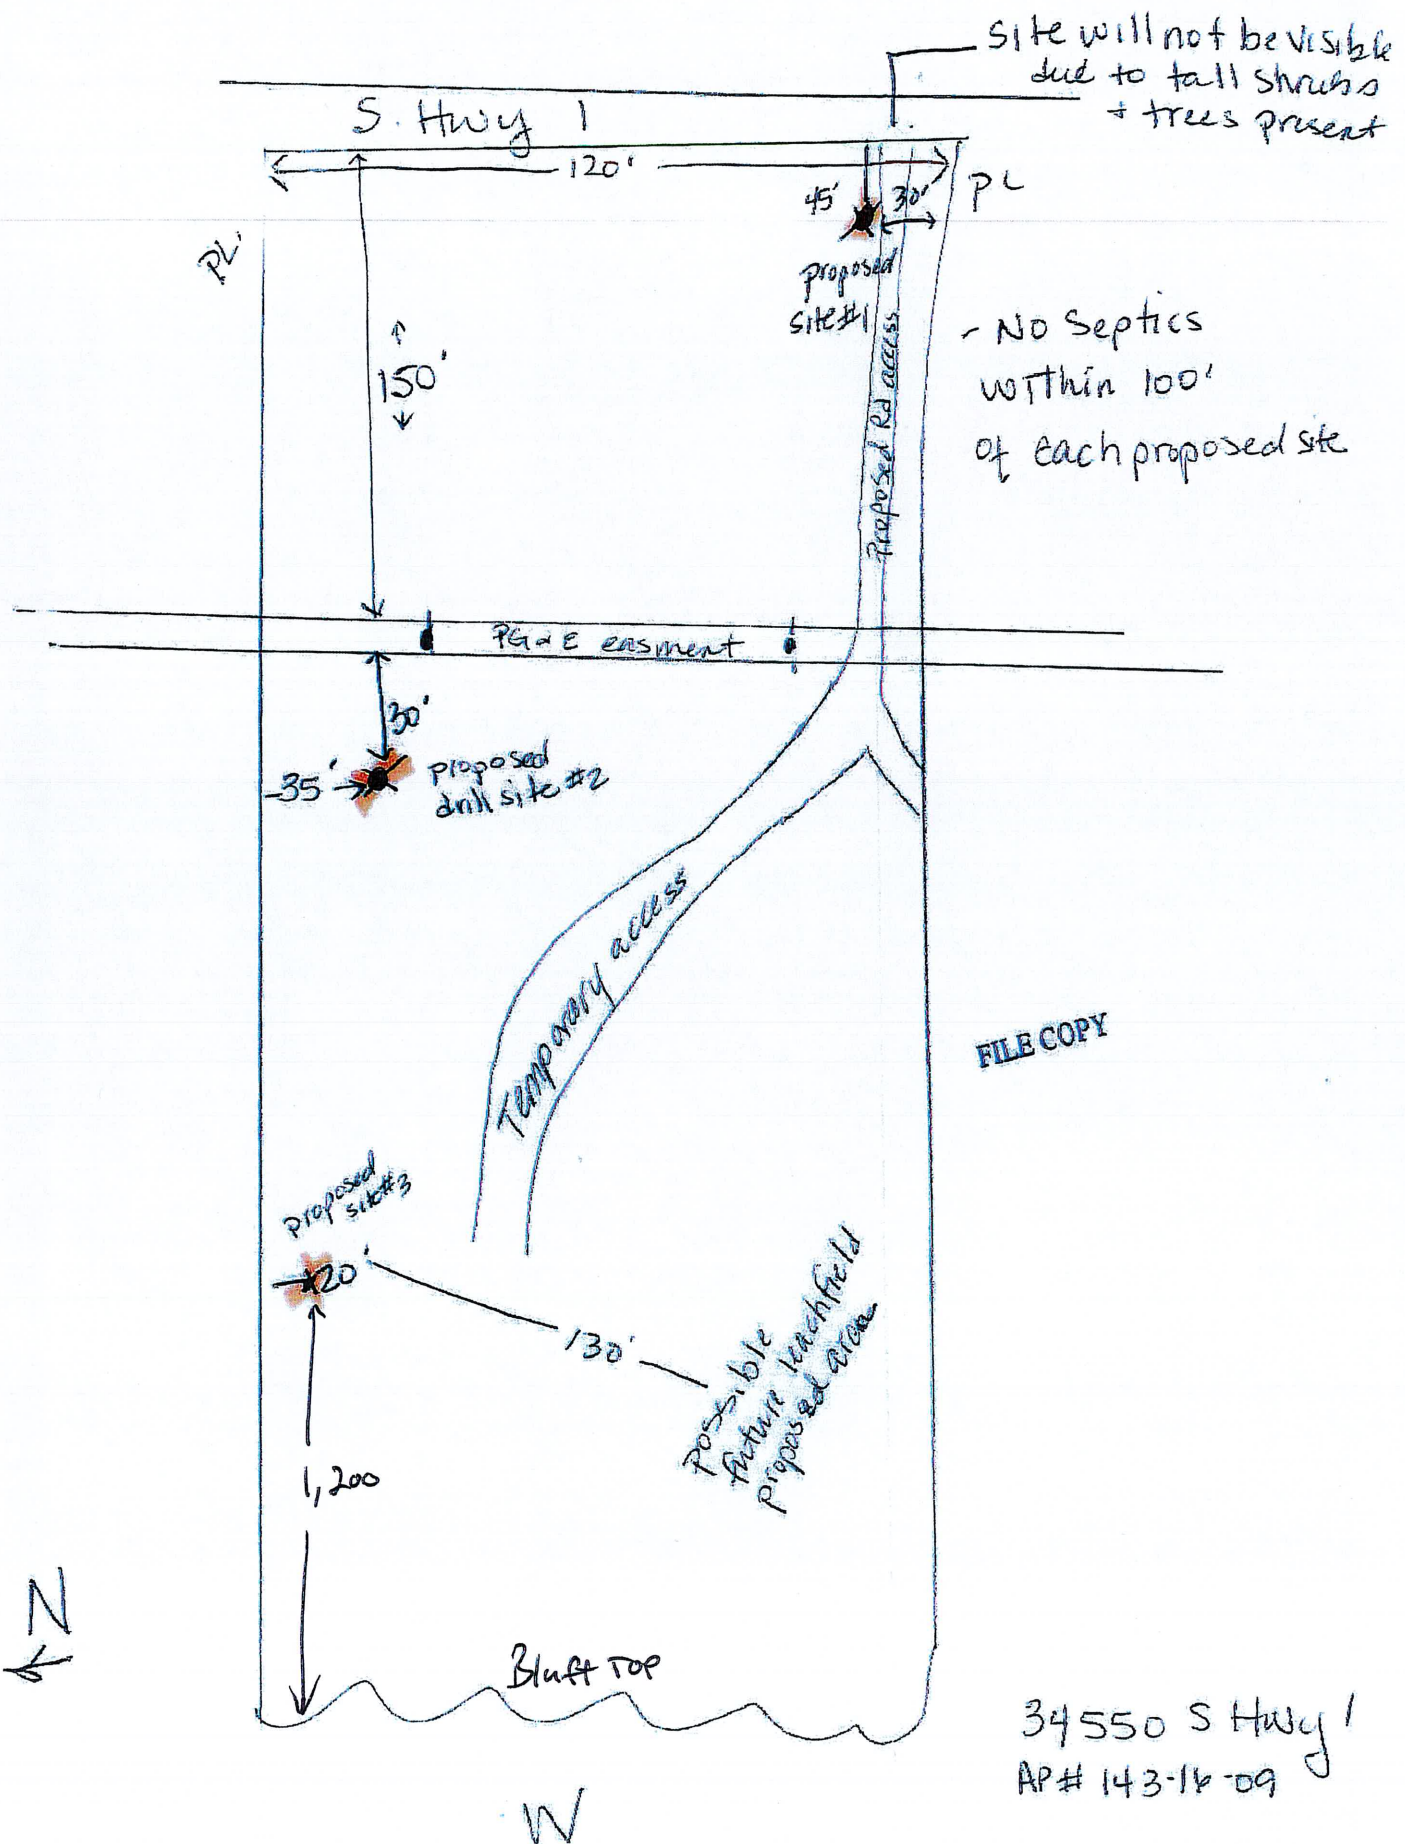 Site will not be visible
due to tall shrubs
+ trees present
S. Hwy 1
120'
PL
45'
30'
PL
proposed
site #1
Proposed Rd access
150'
- No Septics
within 100'
of each proposed site
PG&E easment
30'
35'
proposed
drill site #2
Temporary access
FILE COPY
proposed
site #3
20'
130'
Possible
future leachfield
proposed area
1,200
N
Bluff Top
W
34550 S Hwy 1
AP# 143-16-09